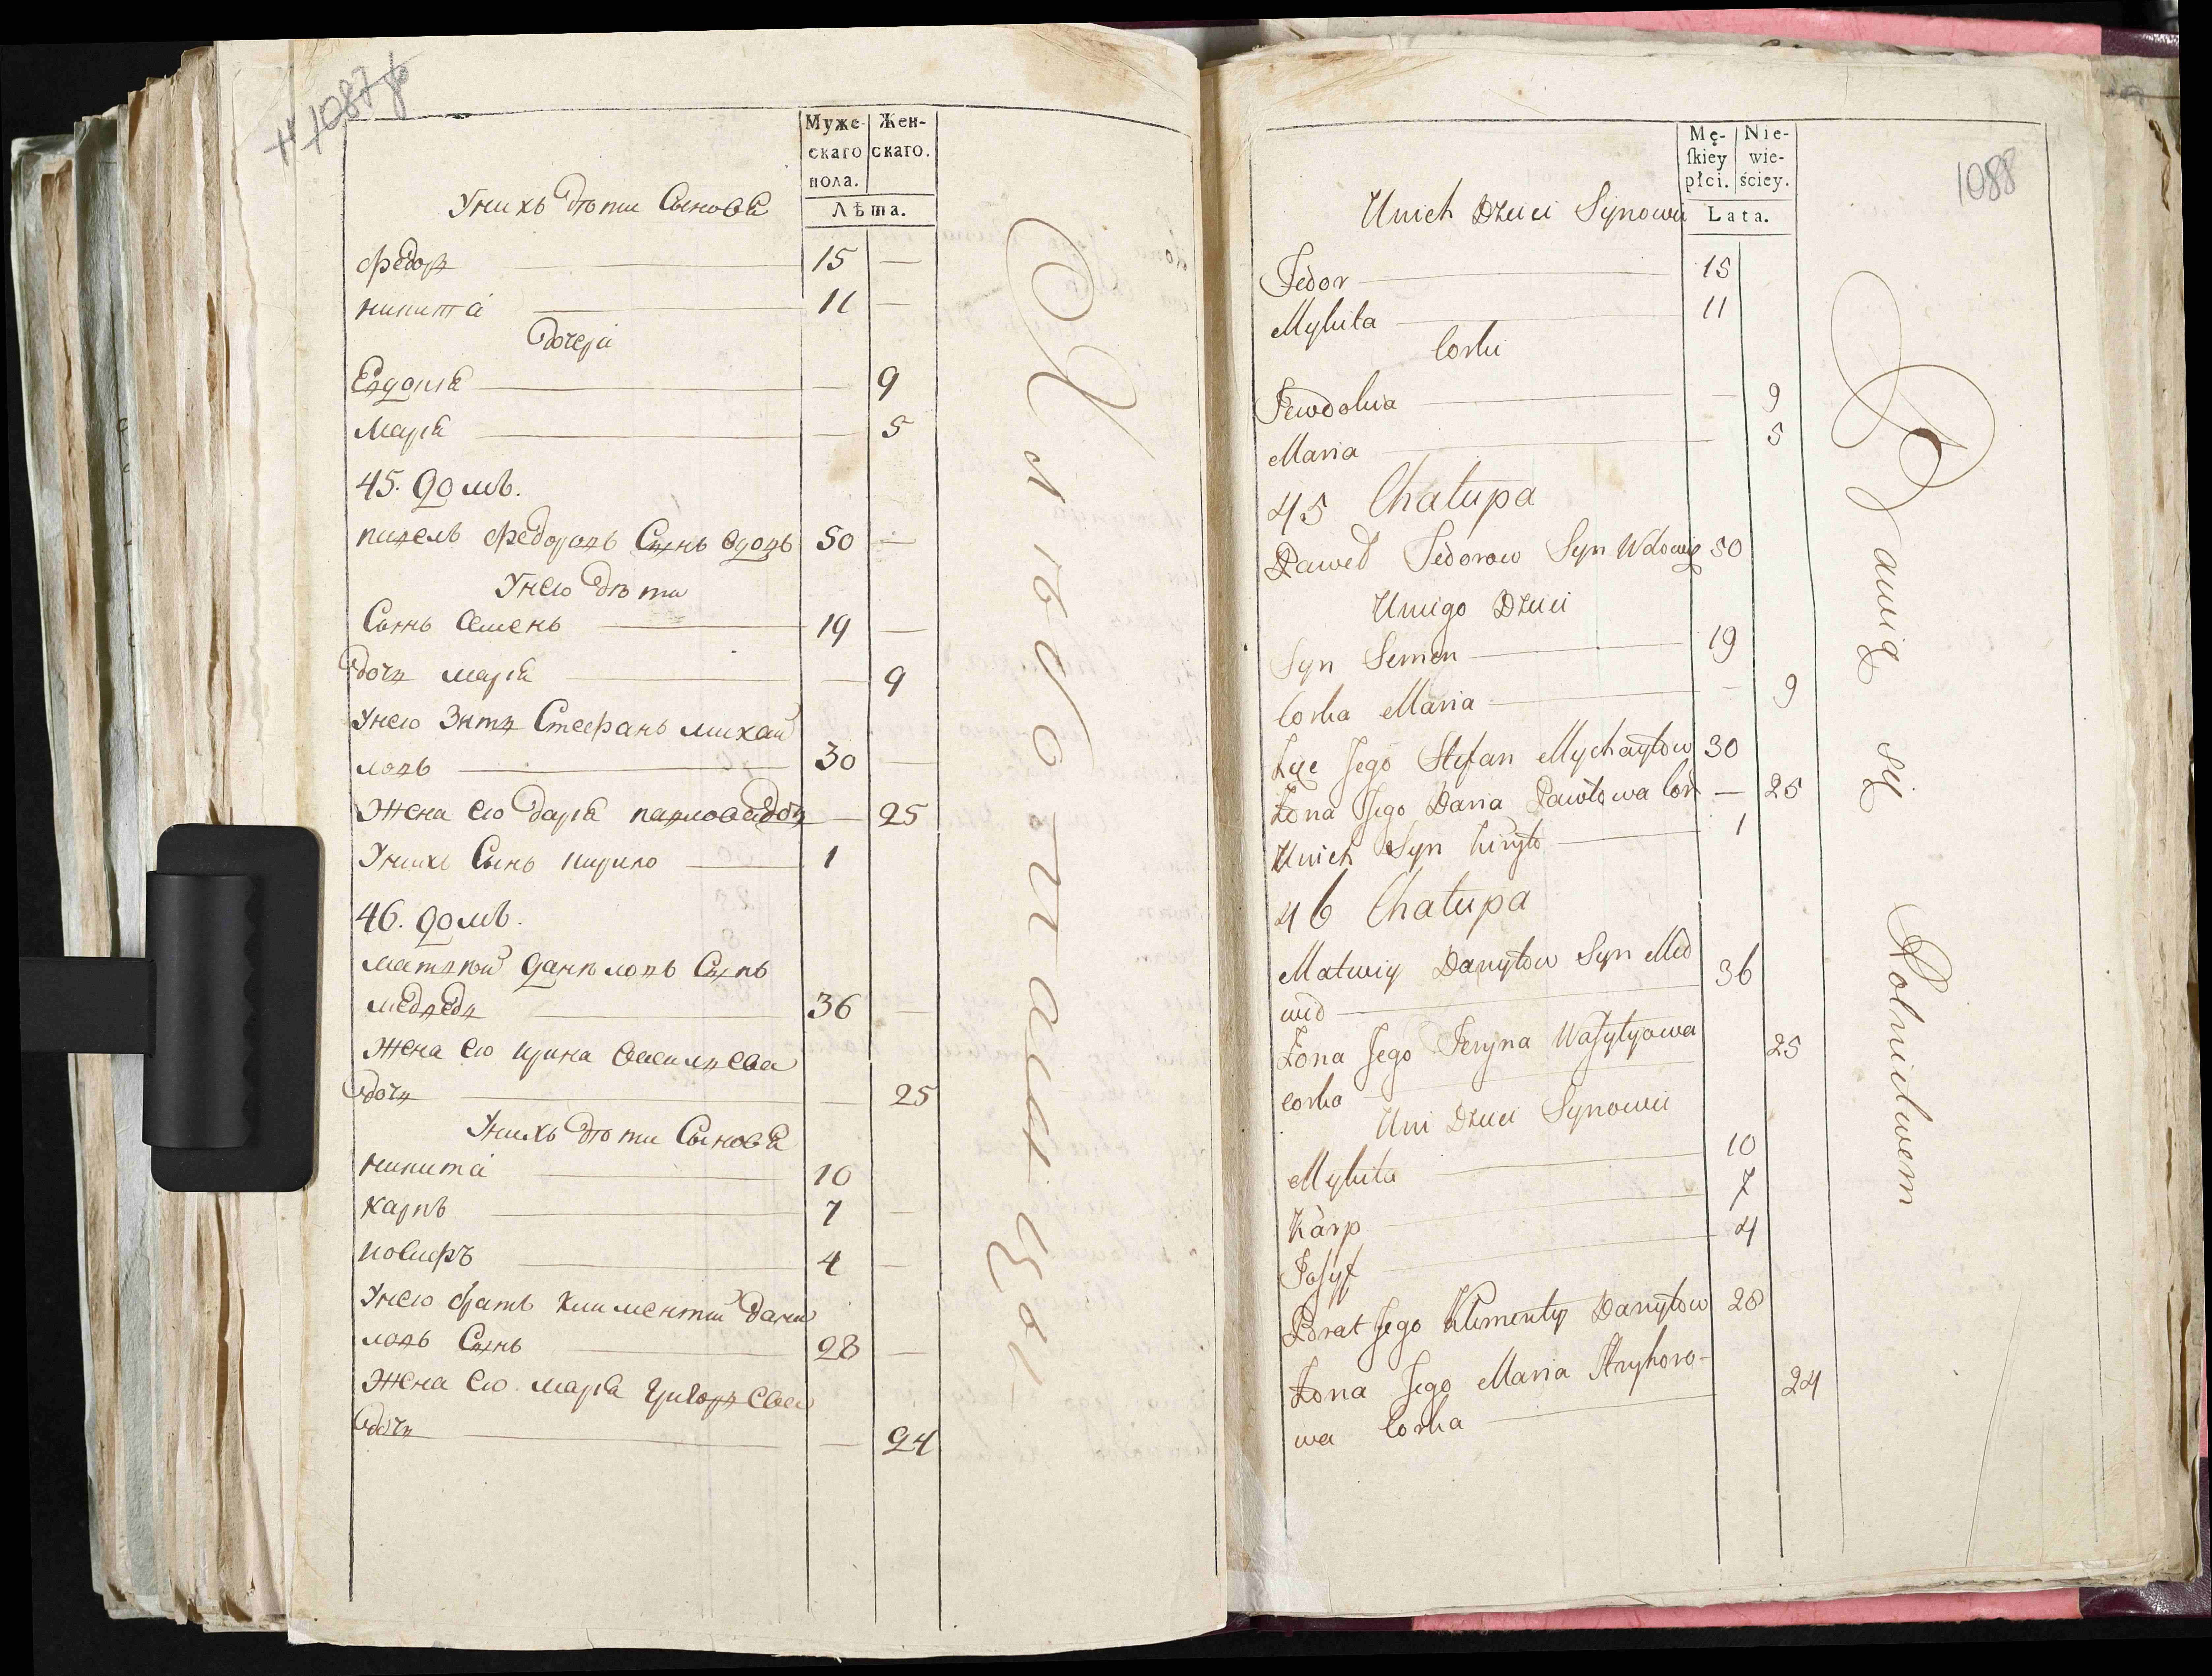 1087
Муже-
скаго
пола.
Жен-
скаго.
Лѣта.
Унихъ дѣти Сыновя
Федор 15 —
никита 11 —
дочери
Евдокія — 9
Марія — 5
45. домъ.
павелъ Федоровъ Сынъ вдовъ 50 —
Унего дѣти
Сынъ Семенъ 19 —
дочь марія — 9
Унего Зять Стефанъ михай
ловъ 30 —
Жена его дарія павлова доч — 25
Унихъ Сынъ кирило 1
46. домъ.
матвѣй даниловъ Сынъ
медведь 36 —
Жена его ирина василева
дочь — 25
Унихъ дѣти Сыновя
никита 10
карпъ 7 —
иосифъ 4 —
Унего братъ климентий дани
ловъ Сынъ 28 —
Жена его марія григорева
дочь — 24
Хлѣбопашцы
1088
Mę-
ſkiey
płci.
Nie-
wie-
ściey.
Lata.
Unich Dzieci Synowie
Fedor 15
Mykita 11
Corki
Fewdokia — 9
Maria 5
45 Chałupa
Paweł Fedorow Syn Wdowiec 50
Uniego Dzieci
Syn Semen 19
Corka Maria — 9
Zięć Jego Stefan Mychayłow 30
Żona Jego Daria Pawłowa Cor — 25
Unich Syn Kiryło 1
46 Chałupa
Matwiy Danyłow Syn Med
wid 36
Żona Jego Jeryna Waſylyowa
corka 25
Uni Dzieci Synowie
Mykita 10
Karp 7
Joſyf 4
Brat Jego Klimenty Danyłow 28
Żona Jego Maria Hryhoro-
wa Corka 24
Bawią się Rolnictwem